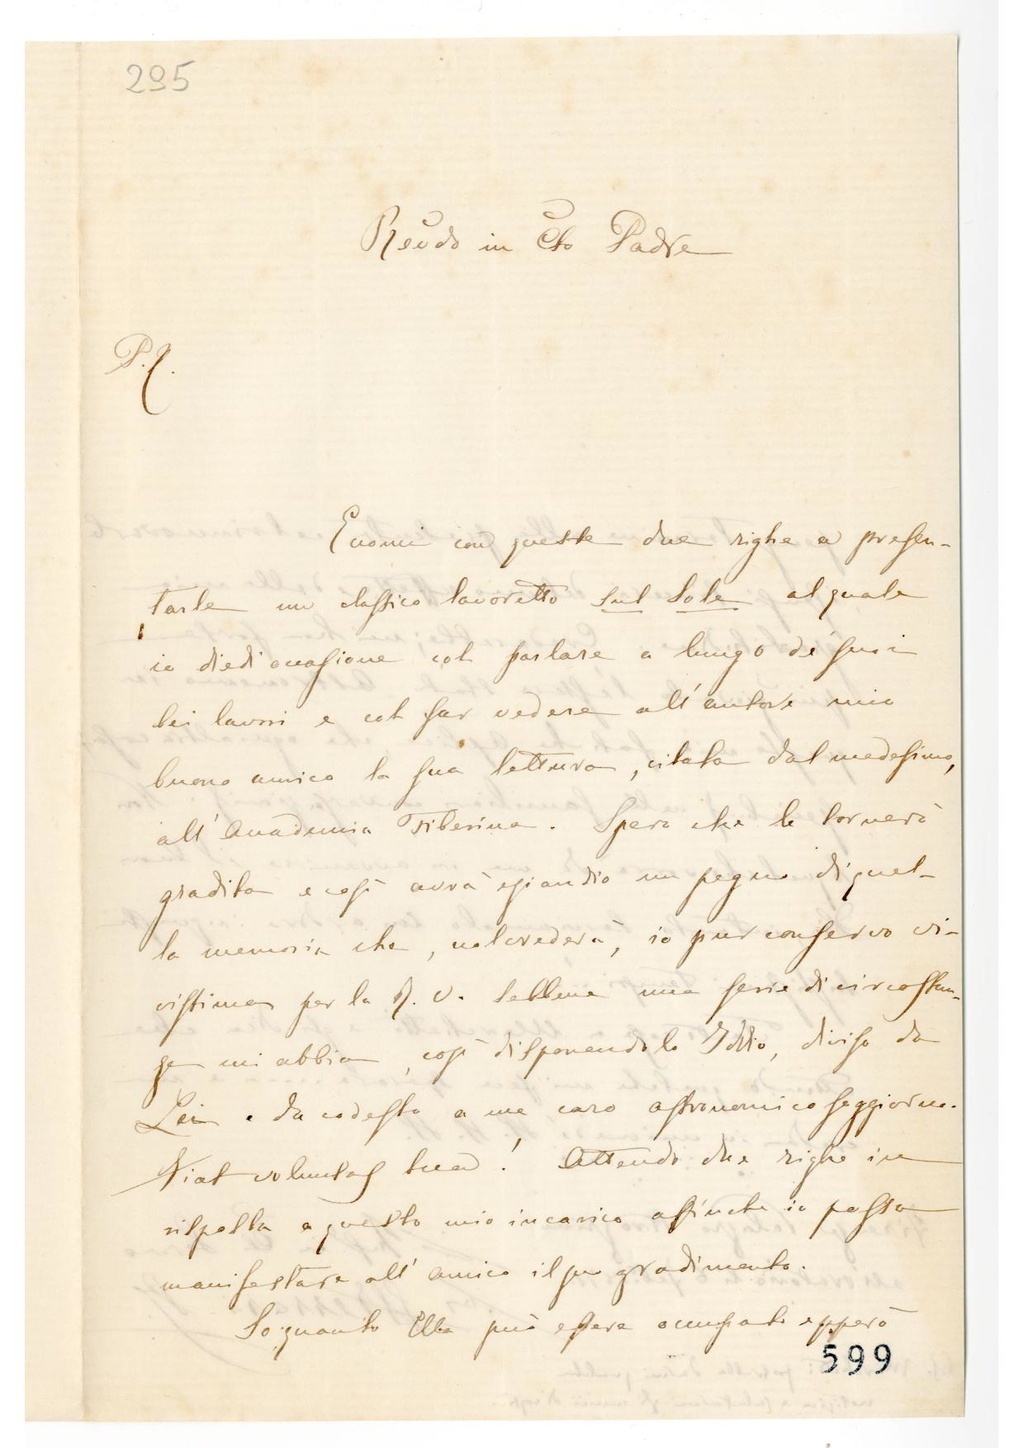 295
Revdo in Cto Padre
P. C.
Eccomi con queste due righe a presen-
tarle un classico lavoretto sul Sole al quale
io diedi occasione col parlare a lungo de' suoi
bei lavori e col far vedere all'autore mio
buono amico la sua lettura, citata dal medesimo,
all'Accademia Tiberina. Spero che le tornerà
gradita e così avrà eziandio un pegno di quel-
la memoria che, nol crederà, io pur conservo vi-
vissima per la R. V. sebbene una serie di circostan-
ze mi abbia, così disponendolo Iddio, diviso da
Lei e da codesto a me caro astronomico soggiorno.
Fiat voluntas tua! Attendo due righe in
risposta a questo mio incarico affinché io possa
manifestare all'amico il suo gradimento.
So quanto Ella può essere occupato epperò
599